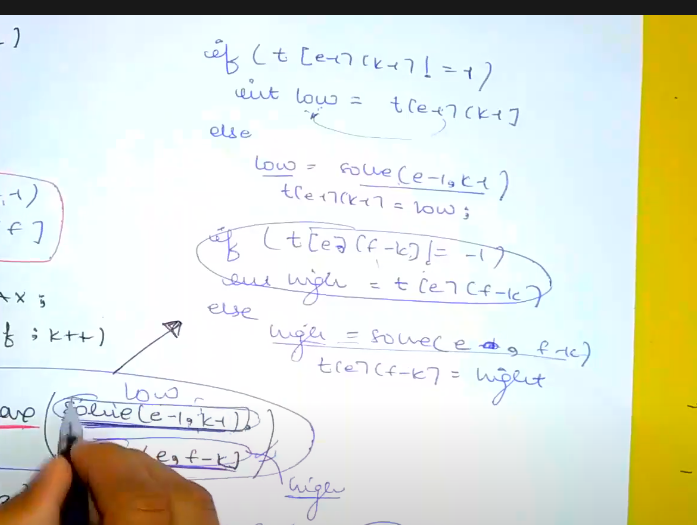 if ( t [e-1] [k-1] != -1)
int low = t[e-1][k-1]
else
low = solve(e-1, k-1)
t[e-1][k-1] = low;
if ( t[e] [f-k] != -1)
int high = t[e][f-k]
else
high = solve( e , f-k)
t[e][f-k] = high
f ]
; k++)
low
solve(e-1, k-1),
(e, f-k]
high